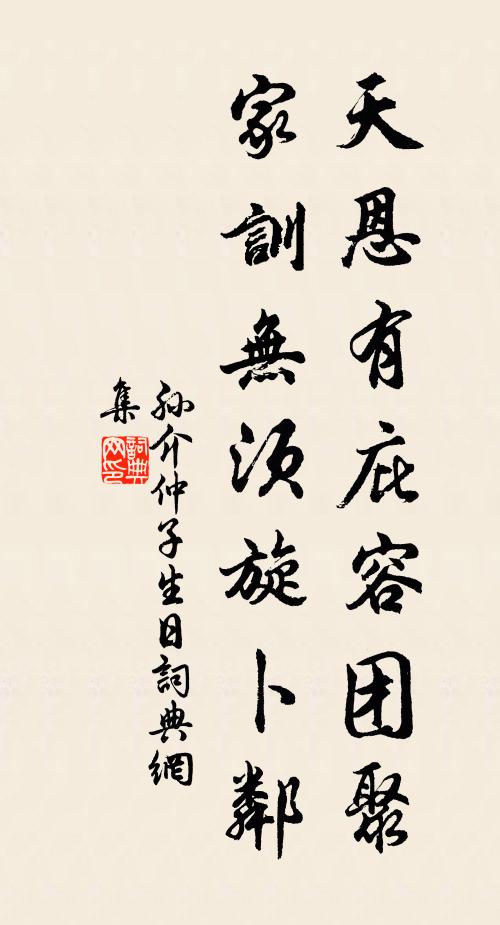 天恩有庇容团聚
家訓無須旋卜鄰
孙介仲子生日詞典網
集
詞典网印